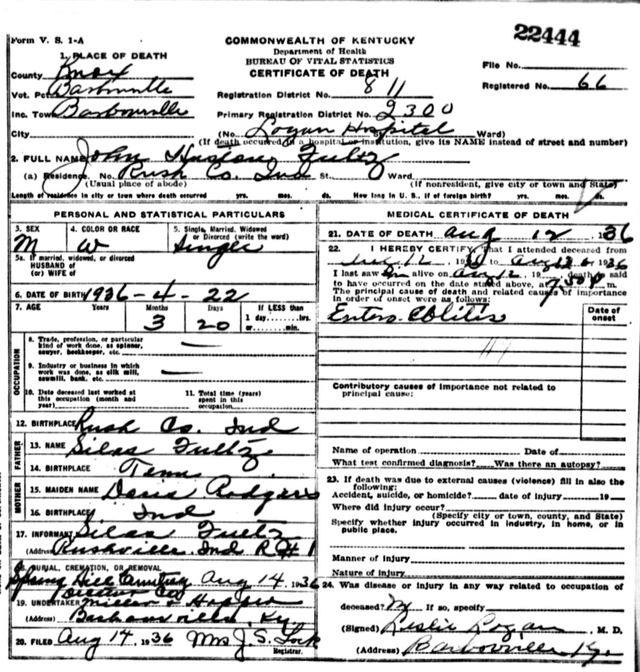 22444
Form V. S. 1-A
COMMONWEALTH OF KENTUCKY
Department of Health
BUREAU OF VITAL STATISTICS
CERTIFICATE OF DEATH
File No.
Registered No. 66
1. PLACE OF DEATH
County Knox
Vot. Pct. Barbourville
Inc. Town Barbourville
City
Registration District No. 811
Primary Registration District No. 2300
(No. Logan Hospital Ward)
(If death occurred in a hospital or institution, give its NAME instead of street and number)
2. FULL NAME John Fultz
(a) Residence. No. Rush Co. Ind St. Ward
(Usual place of abode) (If nonresident, give city or town and State)
Length of residence in city or town where death occurred yrs. mos. ds. How long in U. S., if of foreign birth? yrs. mos. ds.
PERSONAL AND STATISTICAL PARTICULARS
3. SEX M
4. COLOR OR RACE W
5. Single, Married, Widowed or Divorced (write the word) Single
5a. If married, widowed, or divorced
HUSBAND of
(or) WIFE of
6. DATE OF BIRTH 1936-4-22
7. AGE Years Months Days If LESS than
3 20 1 day......hrs.
or......min.
OCCUPATION
8. Trade, profession, or particular
kind of work done, as spinner,
sawyer, bookkeeper, etc. —
9. Industry or business in which
work was done, as silk mill,
sawmill, bank, etc. —
10. Date deceased last worked at
this occupation (month and
year)
11. Total time (years)
spent in this
occupation
12. BIRTHPLACE Rush Co. Ind
FATHER
13. NAME Silas Fultz
14. BIRTHPLACE Tenn
MOTHER
15. MAIDEN NAME Rodgers
16. BIRTHPLACE Ind
17. INFORMANT Silas Fultz
(Address) Rushville Ind R # 1
18. BURIAL, CREMATION, OR REMOVAL
Spring Hill Cemetery Aug 14, 1936
19. UNDERTAKER
(Address) Barbourville, Ky
20. FILED Aug 14, 1936 Mrs J. S. Lock
Registrar.
MEDICAL CERTIFICATE OF DEATH
21. DATE OF DEATH Aug 12, 1936
22. I HEREBY CERTIFY, that I attended deceased from
1936 to 1936
I last saw alive on Aug 12, 19 death is said
to have occurred on the date stated above, at m.
The principal cause of death and related causes of importance
in order of onset were as follows:
Date of
onset
Entero Colitis
Contributory causes of importance not related to
principal cause:
Name of operation Date of
What test confirmed diagnosis? Was there an autopsy?
23. If death was due to external causes (violence) fill in also the
following:
Accident, suicide, or homicide? date of injury 19
Where did injury occur?
(Specify city or town, county, and State)
Specify whether injury occurred in industry, in home, or in
public place.
Manner of injury
Nature of injury
24. Was disease or injury in any way related to occupation of
deceased? No If so, specify
(Signed) Leslie Logan M. D.
(Address) Barbourville Ky.